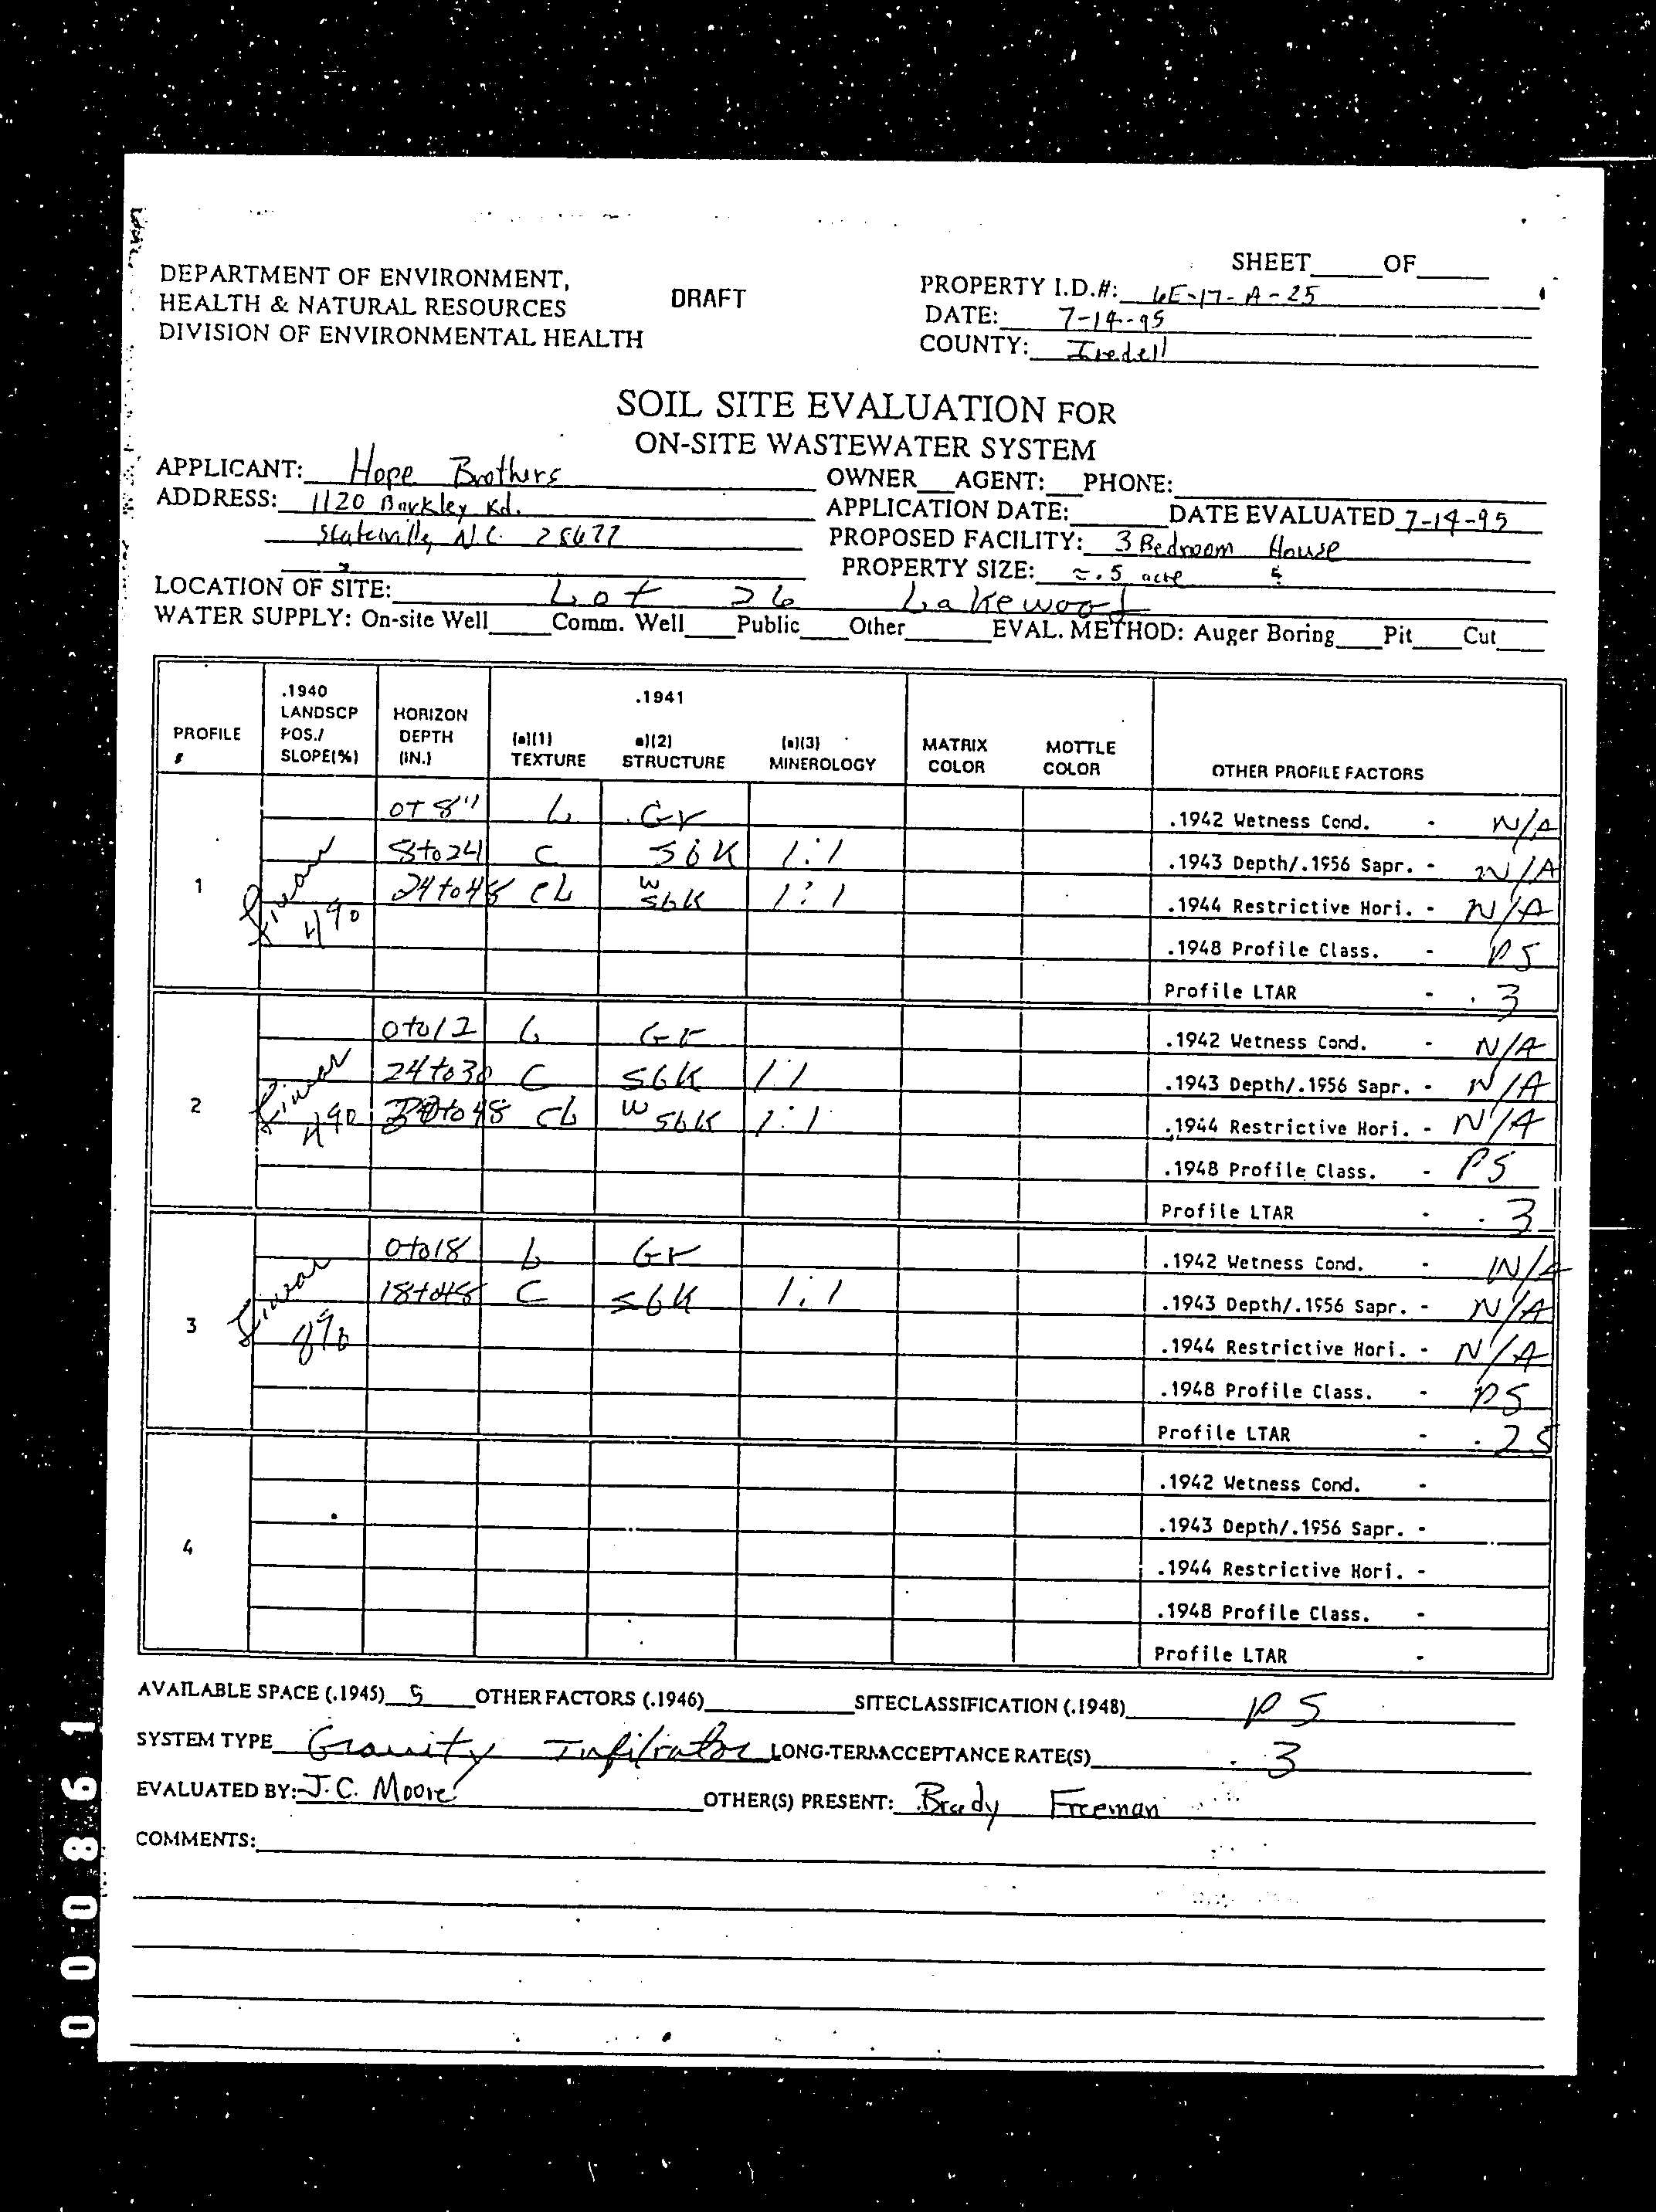 SHEET_____OF_____
DEPARTMENT OF ENVIRONMENT,
HEALTH & NATURAL RESOURCES
DIVISION OF ENVIRONMENTAL HEALTH
DRAFT
PROPERTY I.D.#: 6E-17-A-25
DATE: 7-14-95
COUNTY: Iredell
SOIL SITE EVALUATION FOR
ON-SITE WASTEWATER SYSTEM
APPLICANT: Hope Brothers
OWNER___AGENT:___PHONE:
ADDRESS: 1120 Barkley Rd.
APPLICATION DATE:______DATE EVALUATED 7-14-95
Statesville, N.C. 28677
PROPOSED FACILITY: 3 Bedroom House
PROPERTY SIZE: ≈.5 acre
LOCATION OF SITE: Lot 26 Lakewood
WATER SUPPLY: On-site Well____Comm. Well____Public____Other______EVAL. METHOD: Auger Boring____Pit____Cut____
PROFILE #
.1940 LANDSCP POS./ SLOPE(%)
HORIZON DEPTH (IN.)
.1941
(a)(1) TEXTURE
a)(2) STRUCTURE
(a)(3) MINEROLOGY
MATRIX COLOR
MOTTLE COLOR
OTHER PROFILE FACTORS
1
4%
0T 8" L Gr
8to24 C SBK 1:1
24to48 CL W SBK 1:1
.1942 Wetness Cond. - N/A
.1943 Depth/.1956 Sapr. - N/A
.1944 Restrictive Hori. - N/A
.1948 Profile Class. - PS
Profile LTAR - .3
2
4%
0to12 L Gr
24to30 C SBK 1:1
30to48 CL W SBK 1:1
.1942 Wetness Cond. - N/A
.1943 Depth/.1956 Sapr. - N/A
.1944 Restrictive Hori. - N/A
.1948 Profile Class. - PS
Profile LTAR - .3
3
8%
0to18 L Gr
18to48 C SBK 1:1
.1942 Wetness Cond. - N/A
.1943 Depth/.1956 Sapr. - N/A
.1944 Restrictive Hori. - N/A
.1948 Profile Class. - PS
Profile LTAR - .25
4
.1942 Wetness Cond. -
.1943 Depth/.1956 Sapr. -
.1944 Restrictive Hori. -
.1948 Profile Class. -
Profile LTAR -
AVAILABLE SPACE (.1945) S OTHER FACTORS (.1946)______SITECLASSIFICATION (.1948) PS
SYSTEM TYPE Gravity Infiltrator LONG-TERM ACCEPTANCE RATE(S) .3
EVALUATED BY: J.C. Moore OTHER(S) PRESENT: Brady Freeman
COMMENTS:
000861